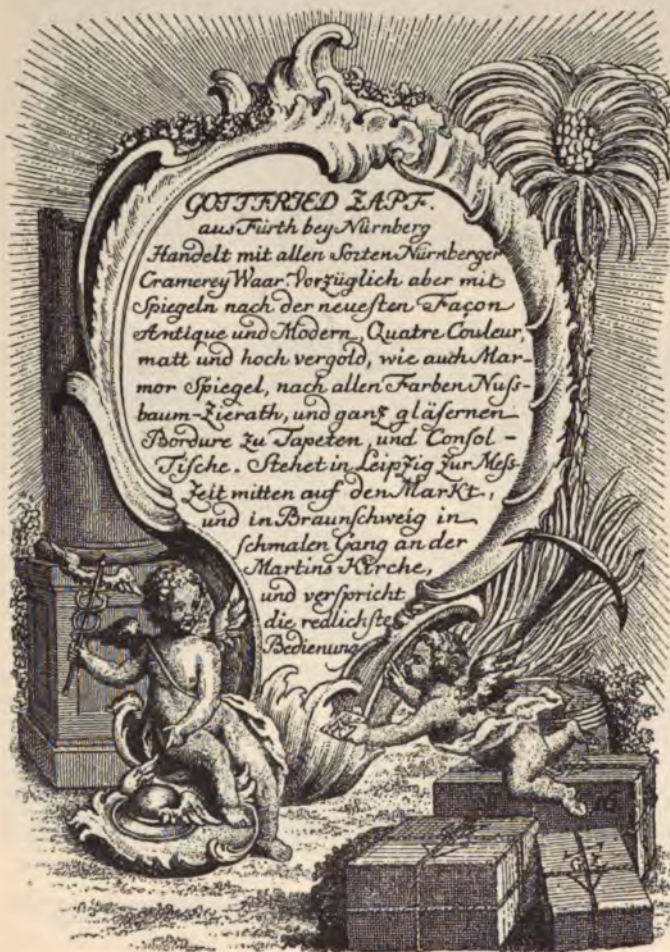 GOTTFRIED ZAPF.
aus Fürth bey Nürnberg
Handelt mit allen Sorten Nürnberger
Cramerey Waar. Vorzüglich aber mit
Spiegeln nach der neuesten Façon
Antique und Modern, Quatre Couleur,
matt und hoch vergold, wie auch Mar-
mor Spiegel, nach allen Farben Nuſs-
baum-Zierath, und ganz gläſernen
Bordure zu Tapeten, und Conſol-
Tiſche. Stehet in Leipzig zur Meſs-
Zeit mitten auf den Markt,
und in Braunſchweig in
ſchmalen Gang an der
Martins Kirche,
und verſpricht
die redlichſte
Bedienung